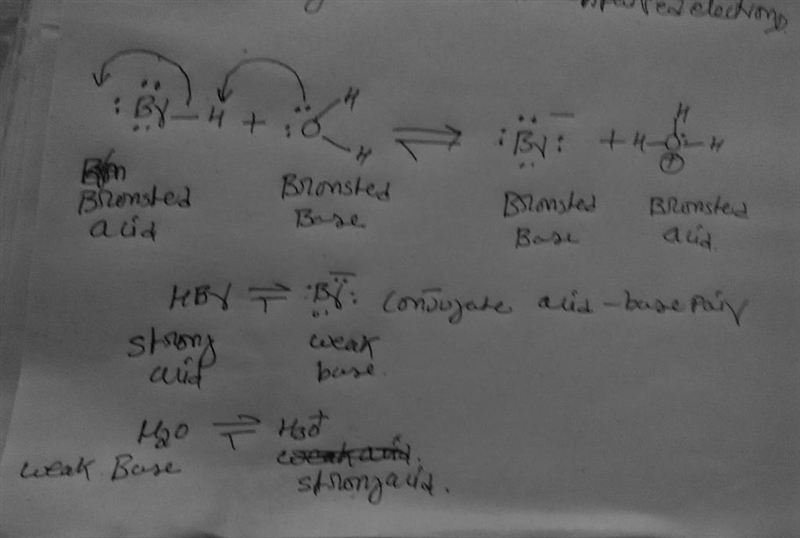 electrons
:Br—H + :O H H ⇌ :Br:⁻ + H—O:—H H ⊕
Bronsted acid
Bronsted Base
Bronsted Base
Bronsted acid
HBr ⇌ :Br:⁻ Conjugate acid-base pair
strong acid
weak base.
H2O ⇌ H3O+
weak Base
strong acid.